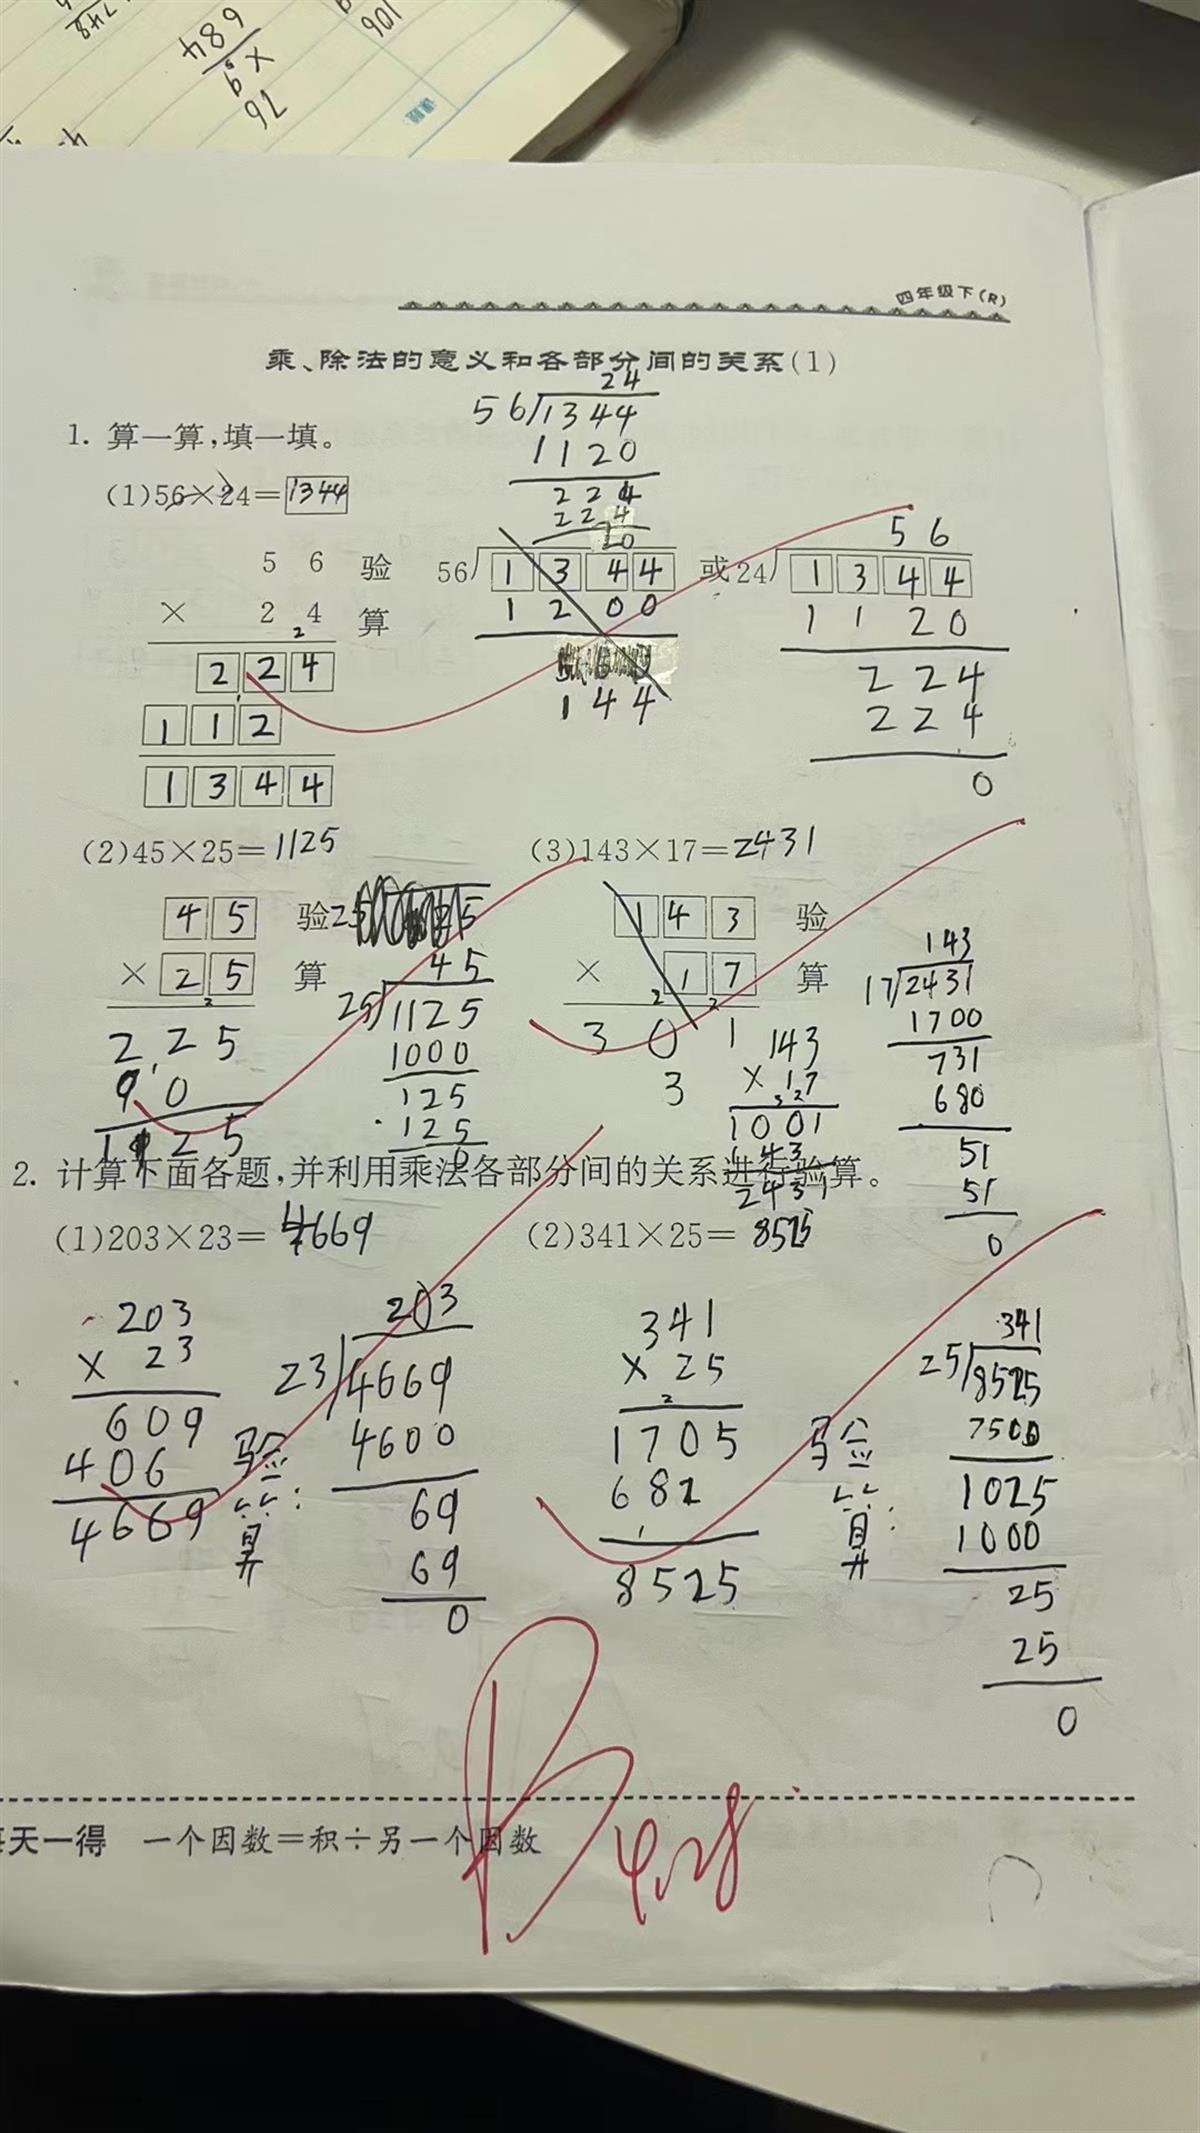 684
106
四年级下(R)
乘、除法的意义和各部分间的关系(1)
24
56 1344
1. 算一算,填一填。
1120
(1)56×24=1344
224
224
0
56 验 56 1344 或 24 1344
56
× 24 算
1200
1120
224
144
224
112
224
1344
0
(2)45×25=1125
(3)143×17=2431
45 验
143 验
× 25 算
× 17 算
45
25 1125
1000
125
125
0
225
90
1125
3 0 1
3
143
× 17
1001
143
2431
143
17 2431
1700
731
680
51
51
0
2. 计算下面各题,并利用乘法各部分间的关系进行验算。
(1)203×23= 4669
(2)341×25= 8525
203
× 23
609
406
4669
验算:
203
23 4669
4600
69
69
0
341
× 25
1705
682
8525
验算:
341
25 8525
7500
1025
1000
25
25
0
天一得 一个因数=积÷另一个因数